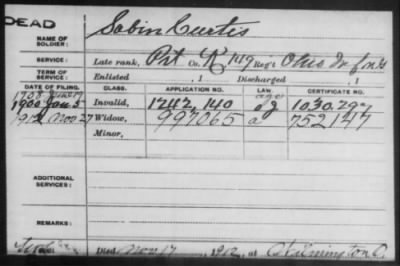 DEAD
Sabin Curtis
NAME OF SOLDIER:
SERVICE: Late rank, Pvt Co. K, 149 Reg't Ohio Inf
TERM OF SERVICE: Enlisted , 1 Discharged , 1
DATE OF FILING. CLASS. APPLICATION NO. LAW. CERTIFICATE NO.
1900 Jan 5 Invalid, 1242,140 1030.297
1912 Nov 27 Widow, 997065 a 752147
Minor,
ADDITIONAL SERVICES:
REMARKS:
Died Nov 17, 1912, at Wilmington O.